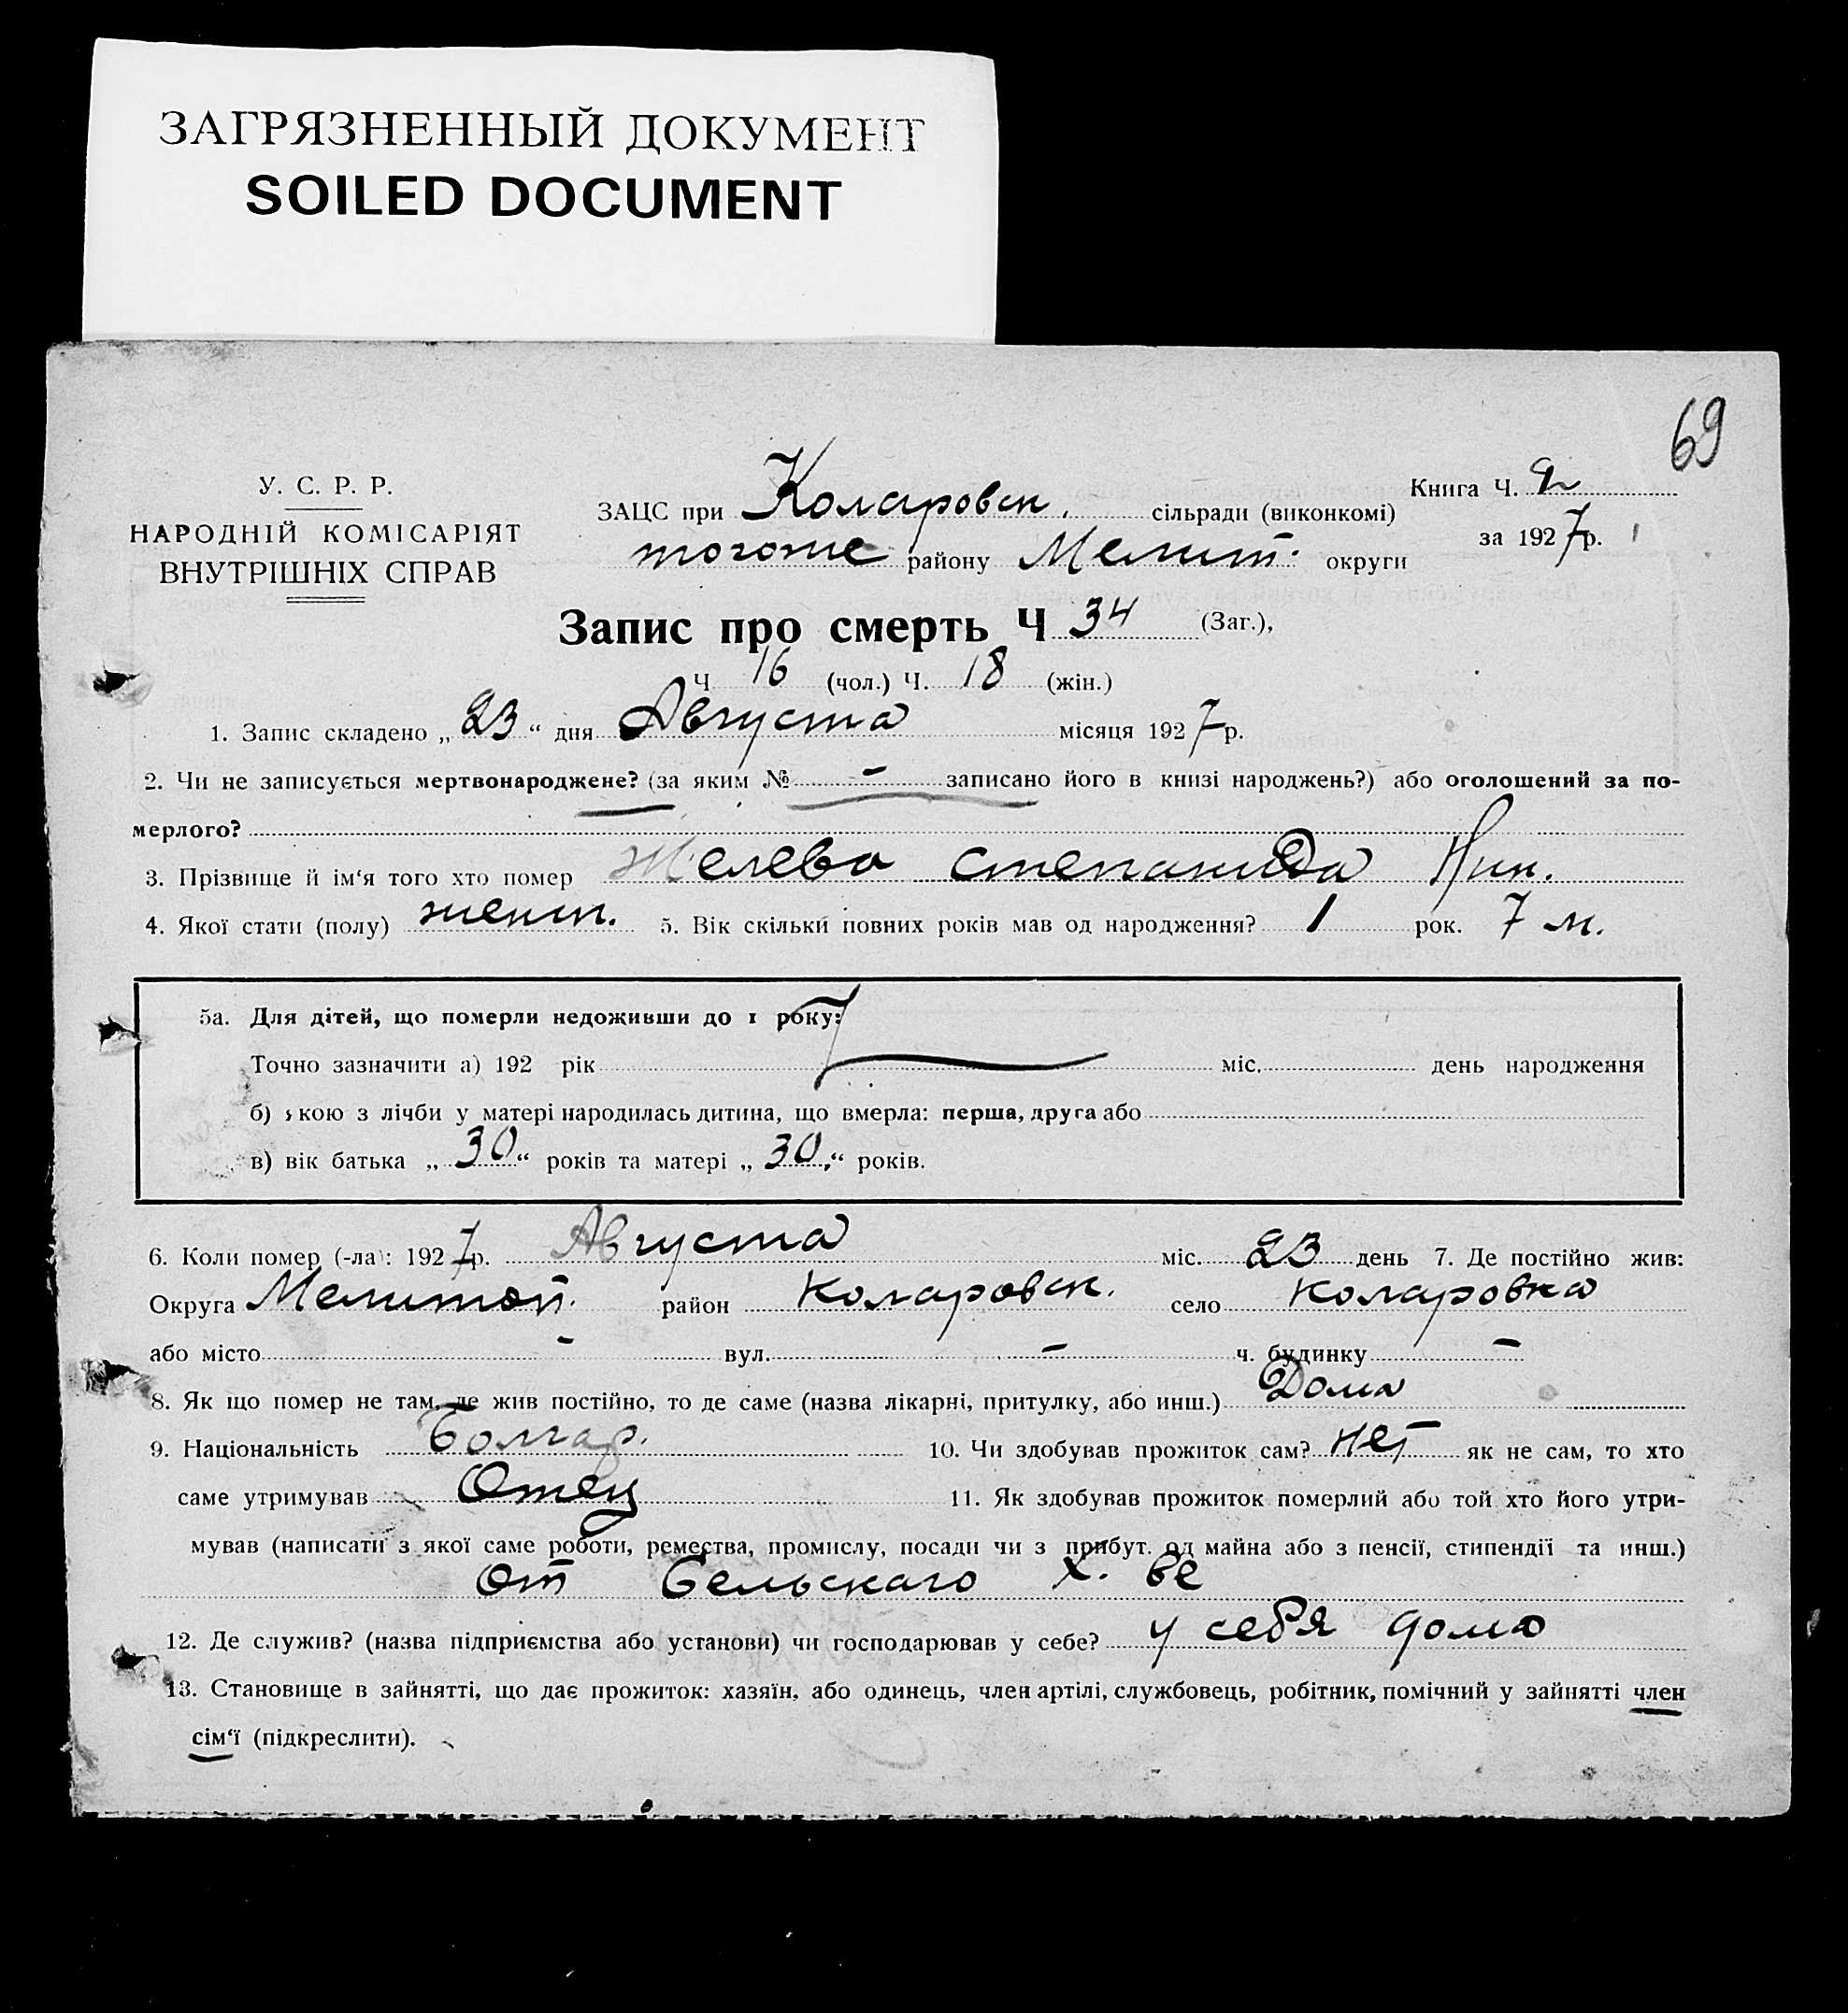 ЗАГРЯЗНЕННЫЙ ДОКУМЕНТ
SOILED DOCUMENT
69
У. С. Р. Р.
НАРОДНІЙ КОМІСАРІЯТ
ВНУТРІШНІХ СПРАВ
ЗАЦС при Коларовск. сільради (виконкомі)
тогоже району Мелит. округи
Книга Ч. 2
за 1927 р.
Запис про смерть Ч 34 (Заг.),
Ч 16 (чол.) Ч. 18 (жін.)
1. Запис складено „ 23 “ дня Августа місяця 1927 р.
2. Чи не записується мертвонароджене? (за яким № - записано його в книзі народжень?) або оголошений за по-
мерлого?
3. Прізвище й ім‘я того хто помер Желева Степанида Ник.
4. Якої стати (полу) женск. 5. Вік скільки повних років мав од народження? 1 рок. 7 м.
5а. Для дітей, що померли недоживши до 1 року:
Точно зазначити а) 192 рік міс. день народження
б) якою з лічби у матері народилась дитина, що вмерла: перша, друга або
в) вік батька „ 30 “ років та матері „ 30 “ років.
6. Коли помер (-ла): 1927 р. Августа міс. 23 день 7. Де постійно жив:
Округа Мелитоп. район Коларовск. село Коларовка
або місто - вул. - ч. будинку -
8. Як що помер не там, де жив постійно, то де саме (назва лікарні, притулку, або инш.) Дома
9. Національність Болгар. 10. Чи здобував прожиток сам? нет як не сам, то хто
саме утримував Отец 11. Як здобував прожиток померлий або той хто його утри-
мував (написати з якої саме роботи, ремества, промислу, посади чи з прибут. од майна або з пенсії, стипендії та инш.)
От Сельскаго х. ве
12. Де служив? (назва підприємства або установи) чи господарював у себе? у себя дома
13. Становище в зайнятті, що дає прожиток: хазяїн, або одинець, член артілі, службовець, робітник, помічний у зайнятті член
сім‘ї (підкреслити).